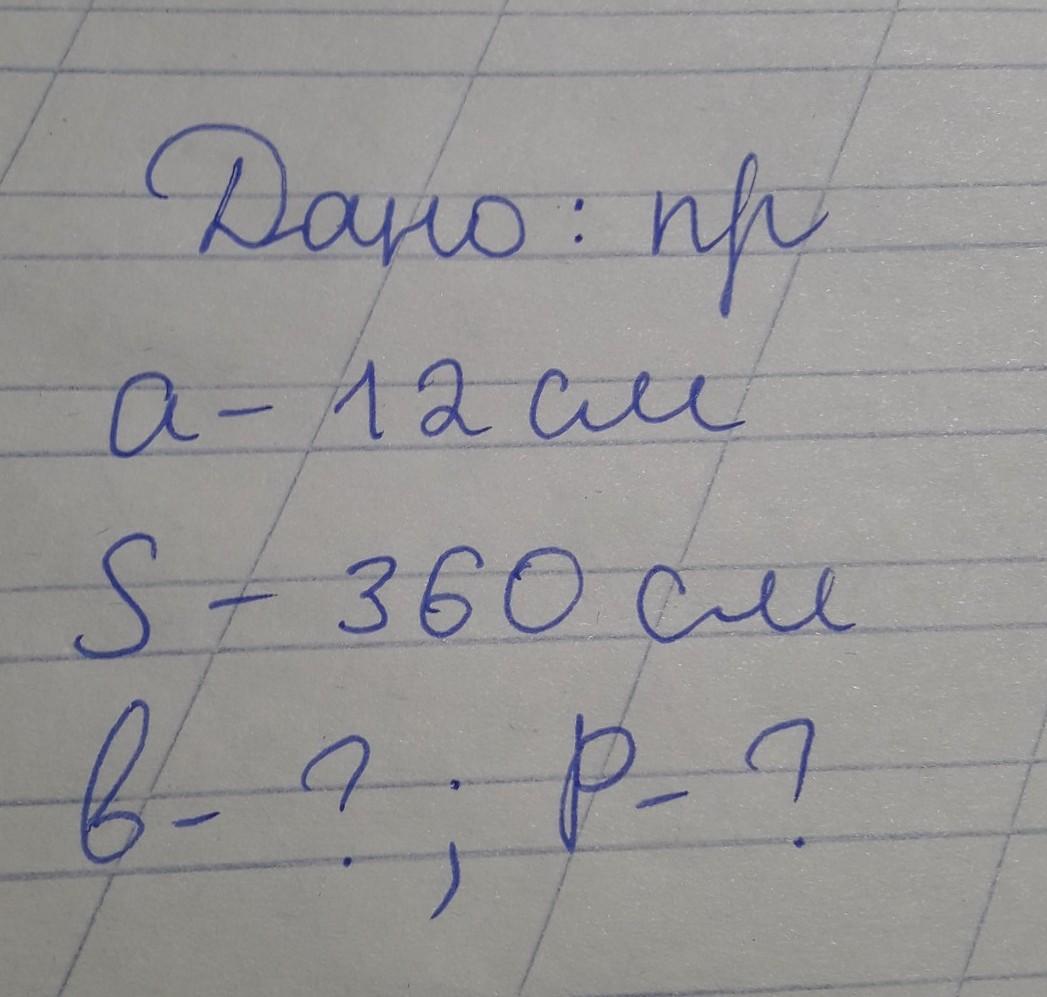 Дано: пр
a - 12 см
S - 360 см
в - ? ; P - ?